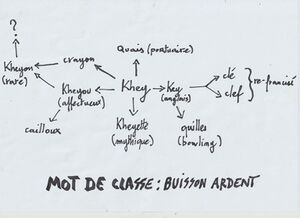 ?
Quais (portuaire)
Kheyon
(rare)
crayon
clé
Kheyou
(affectueux)
Khey
Key
(anglais)
re-francisé
clef
cailloux
Kheyette
(mythique)
quilles
(bowling)
MOT DE CLASSE : BUISSON ARDENT